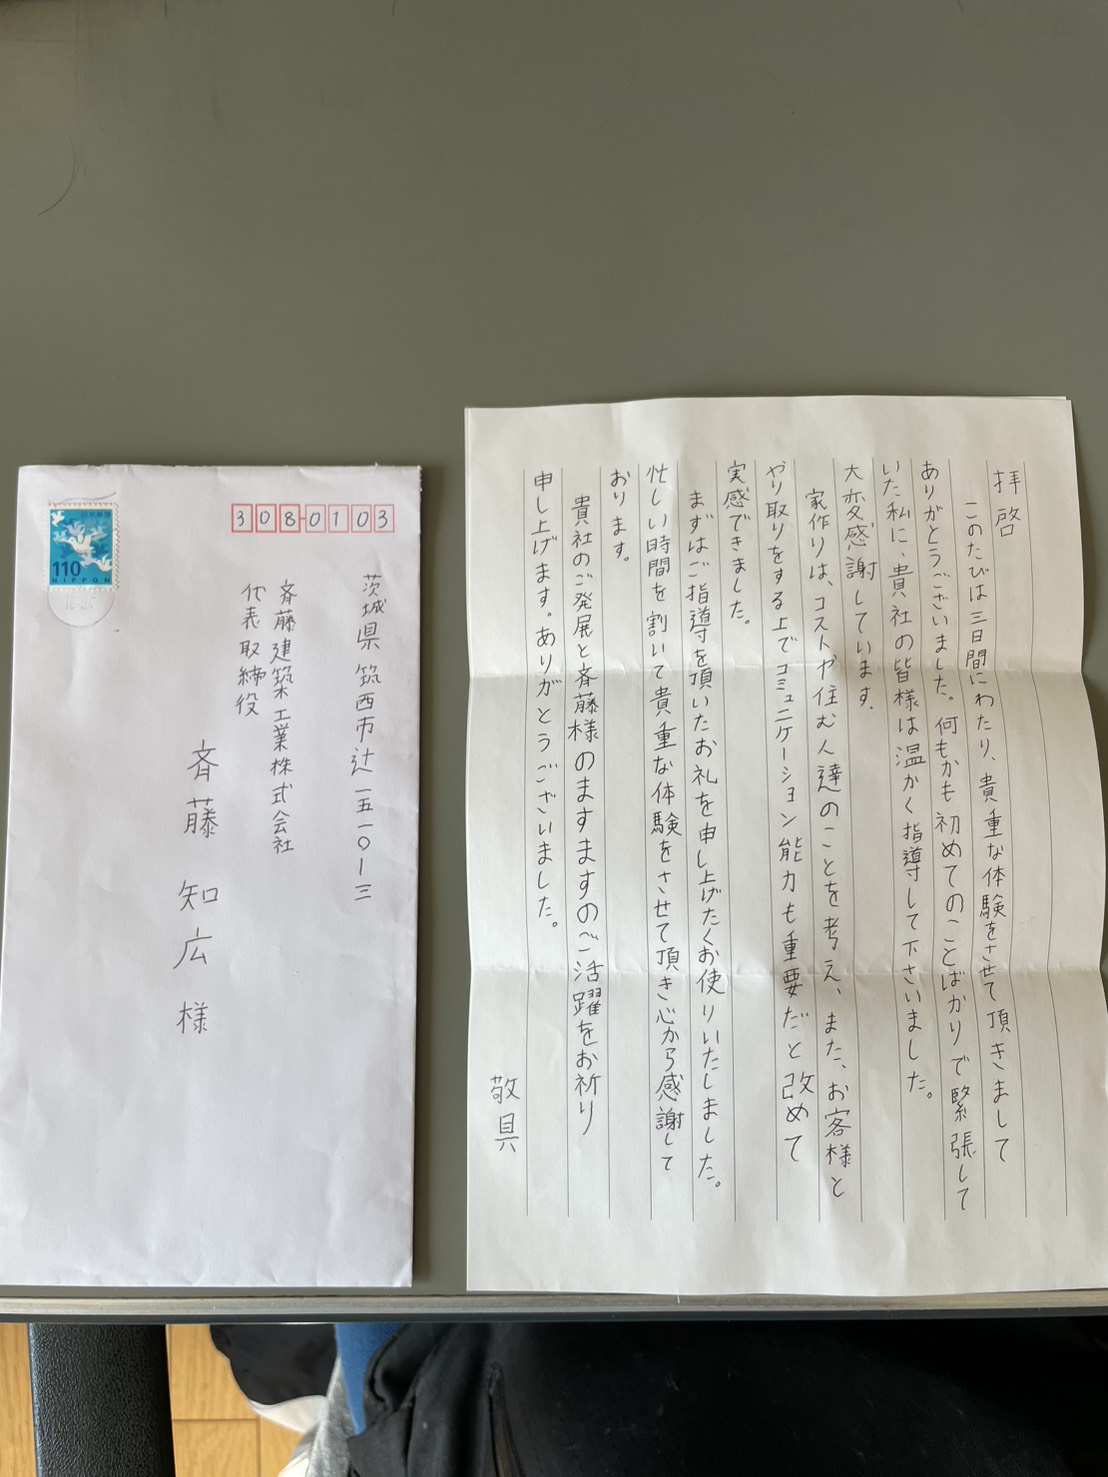 308-0103
茨城県筑西市辻一五一〇ー三
斉藤建築工業株式会社
代表取締役
斉藤知広様
日本郵便
110
NIPPON
拝啓
このたびは三日間にわたり、貴重な体験をさせて頂きまして
ありがとうございました。何もかも初めてのことばかりで緊張して
いた私に、貴社の皆様は温かく指導して下さいました。
大変感謝しています。
家作りは、コストや住む人達のことを考え、また、お客様と
やり取りをする上でコミュニケーション能力も重要だと改めて
実感できました。
まずはご指導を頂いたお礼を申し上げたくお使りいたしました。
忙しい時間を割いて貴重な体験をさせて頂き心から感謝して
おります。
貴社のご発展と斉藤様のますますのご活躍をお祈り
申し上げます。ありがとうございました。
敬具